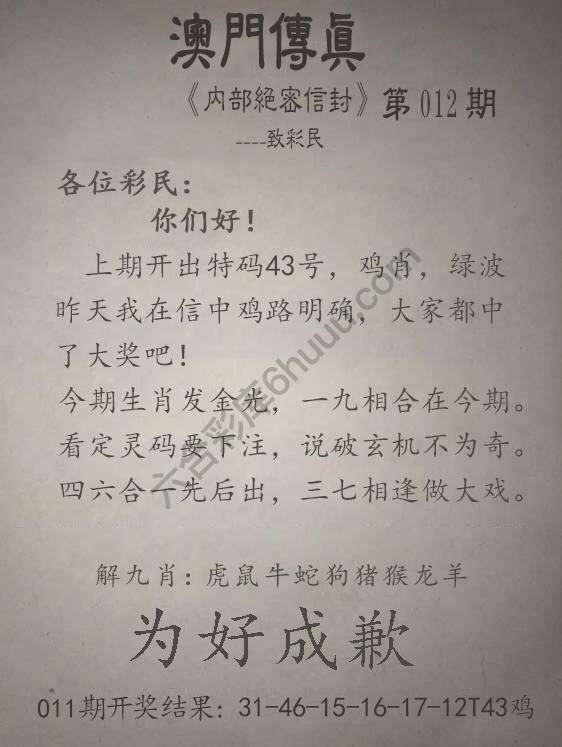 澳門傳眞
《内部絕密信封》第012期
----致彩民
各位彩民：
你们好！
上期开出特码43号，鸡肖，绿波
昨天我在信中鸡路明确，大家都中
了大奖吧！
今期生肖发金光，一九相合在今期。
看定灵码要下注，说破玄机不为奇。
四六合一先后出，三七相逢做大戏。
解九肖：虎鼠牛蛇狗猪猴龙羊
为好成歉
011期开奖结果：31-46-15-16-17-12T43鸡
六合彩库6huuu.com